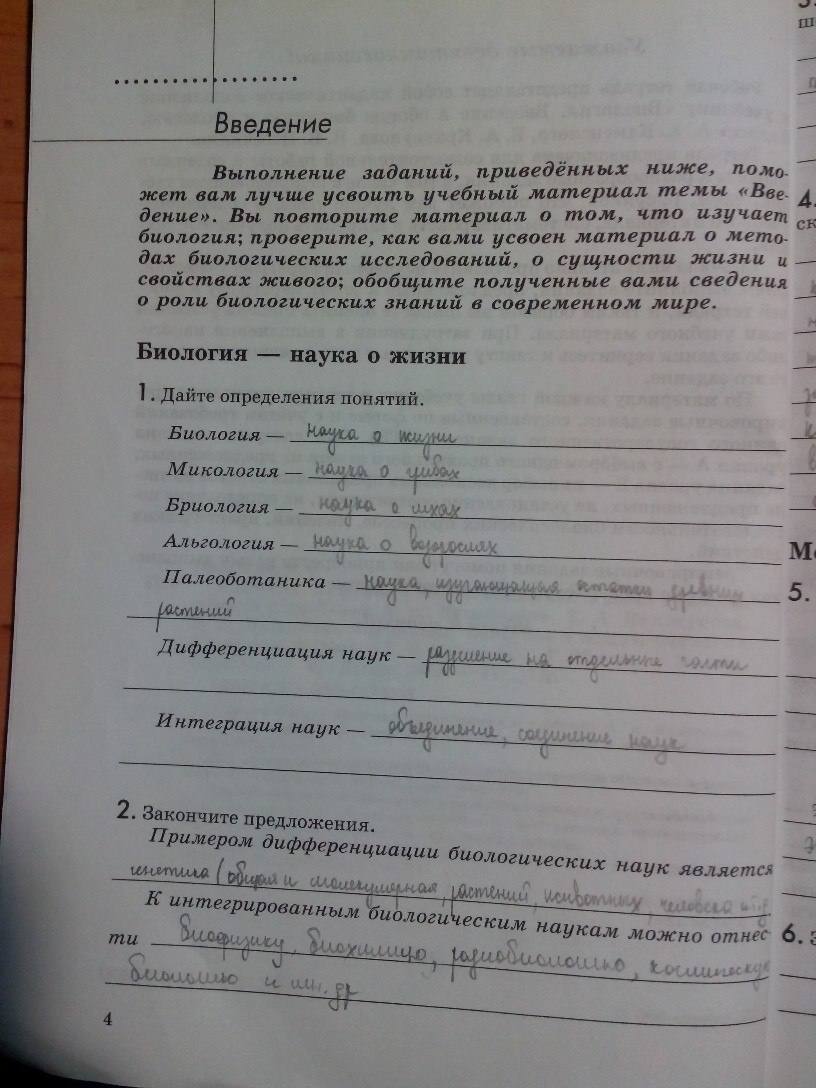 Введение
Выполнение заданий, приведённых ниже, помо-
жет вам лучше усвоить учебный материал темы «Вве-
дение». Вы повторите материал о том, что изучает
биология; проверите, как вами усвоен материал о мето-
дах биологических исследований, о сущности жизни и
свойствах живого; обобщите полученные вами сведения
о роли биологических знаний в современном мире.
Биология — наука о жизни
1. Дайте определения понятий.
Биология — наука о жизни
Микология — наука о грибах
Бриология — наука о мхах
Альгология — наука о водорослях
Палеоботаника — наука, изучающая остатки древних
растений
Дифференциация наук — разделение на отдельные части
Интеграция наук — объединение, соединение наук
2. Закончите предложения.
Примером дифференциации биологических наук является
генетика (общая и молекулярная, растений, животных, человека и т.д
К интегрированным биологическим наукам можно отнес
ти биофизику, биохимию, радиобиологию, космическую
биологию и мн. др
4
4.
ск
5.
6.